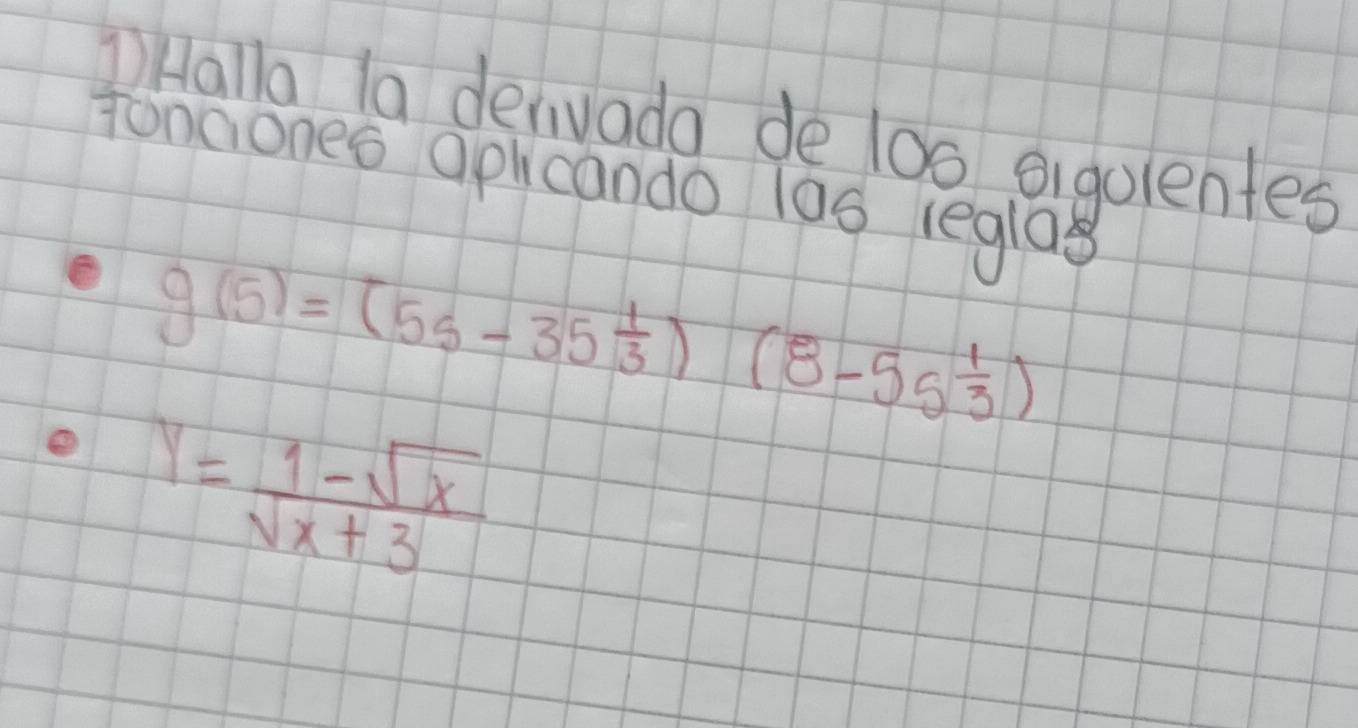 1) Halla la derivada de las siguientes
funciones aplicando las reglas
• g(5) = (5s - 35 1/3) (8 - 5s 1/3)
• Y = (1 - √x) / (√x + 3)